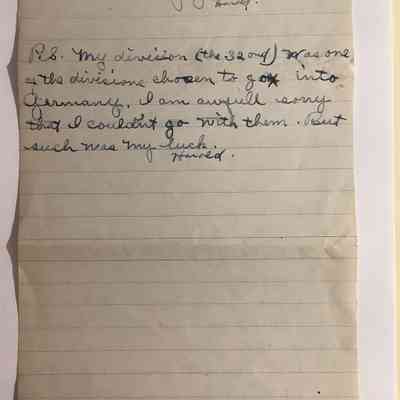 Harold.
P.S. My division (the 32nd) was one
of the divisions chosen to go into
Germany. I am awfull sorry
that I couldn't go with them. But
such was my luck.
Harold.